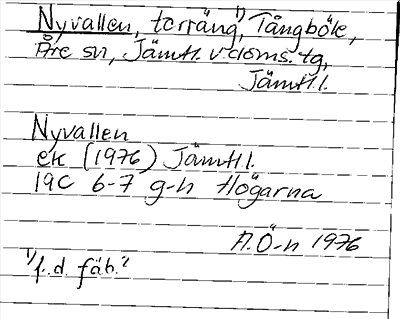 Nyvallen, terräng,¹⁾ Tångböle,
Åre sn, Jämtl. v. doms. tg,
Jämtl.l.
Nyvallen
ek (1976) Jämtl l.
19C 6-7 g-h Högarna
A.Ö-n 1976
¹⁾f.d. fäb.?